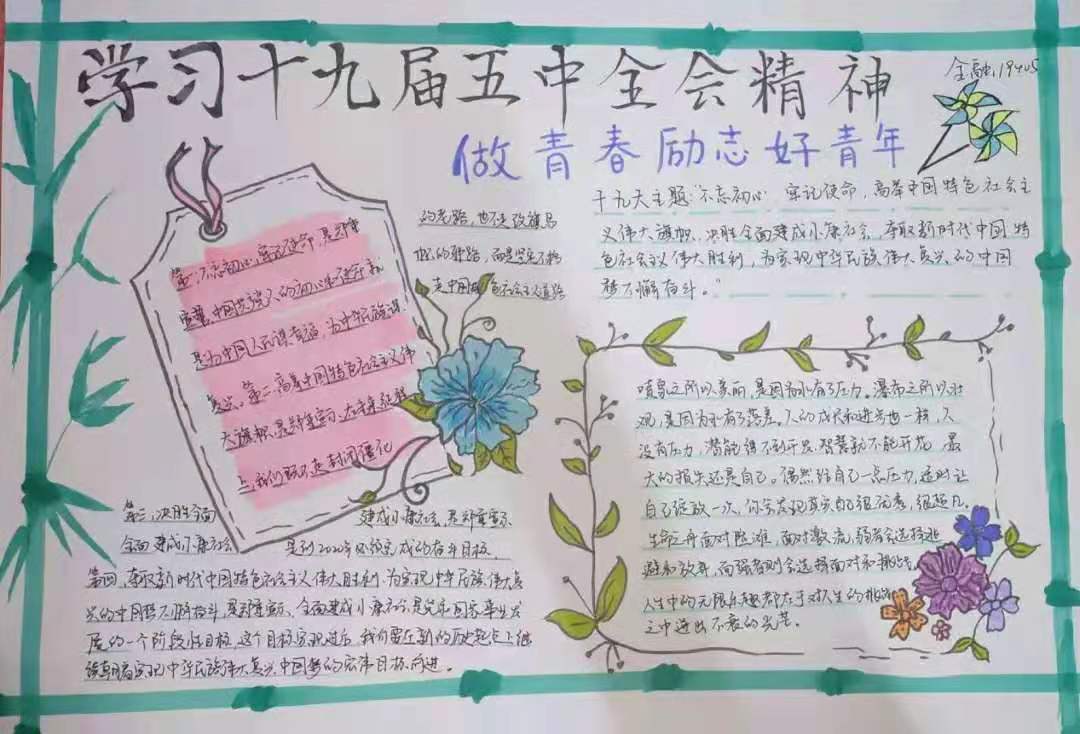 学习十九届五中全会精神
金融19405
做青春励志好青年
十九大主题:“不忘初心 牢记使命,高举中国特色社会主
义伟大旗帜、决胜全面建成小康社会,夺取新时代中国特
色社会主义伟大胜利,为实现中华民族伟大复兴的中国
梦不懈奋斗。”
第一,不忘初心,牢记使命,是郑重
宣誓,中国共产党人的初心和使命
是为中国人民谋幸福,为中华民族谋
复兴。第二高举中国特色社会主义伟
大旗帜,是郑重宣示、
上,我们既不走封闭僵化
的老路,也不走改旗易
帜的邪路,而是坚定不移
走中国特色社会主义道路
第三,决胜全面 建成小康社会,是郑重宣示
全面建成小康社会 是到2020年必须完成的奋斗目标
第四,夺取新时代中国特色社会主义伟大胜利,为实现中华民族伟大复
兴的中国梦不懈奋斗,是郑重宣示、全面建成小康社会,是党和国家事业发
展的一个阶段性目标,这个目标实现过后,我们要在新的历史起点上继
续朝着实现中华民族伟大复兴中国梦的宏伟目标前进。
喷泉之所以美丽,是因为水有了压力。瀑布之所以壮
观,是因为水有了落差。人的成长和进步也一样,人
没有压力,潜能得不到开发,智慧就不能开花,最
大的损失还是自己。偶然给自己一点压力,适时让
自己绽放一次,你会发现其实自己很优秀,很超凡。
生命之舟面对险滩,面对激流,弱者会选择逃
避和放弃,而强者则会选择面对和挑战。
人生中的无限乐趣都在于对人生的挑战
之中迸出不衰的光芒。